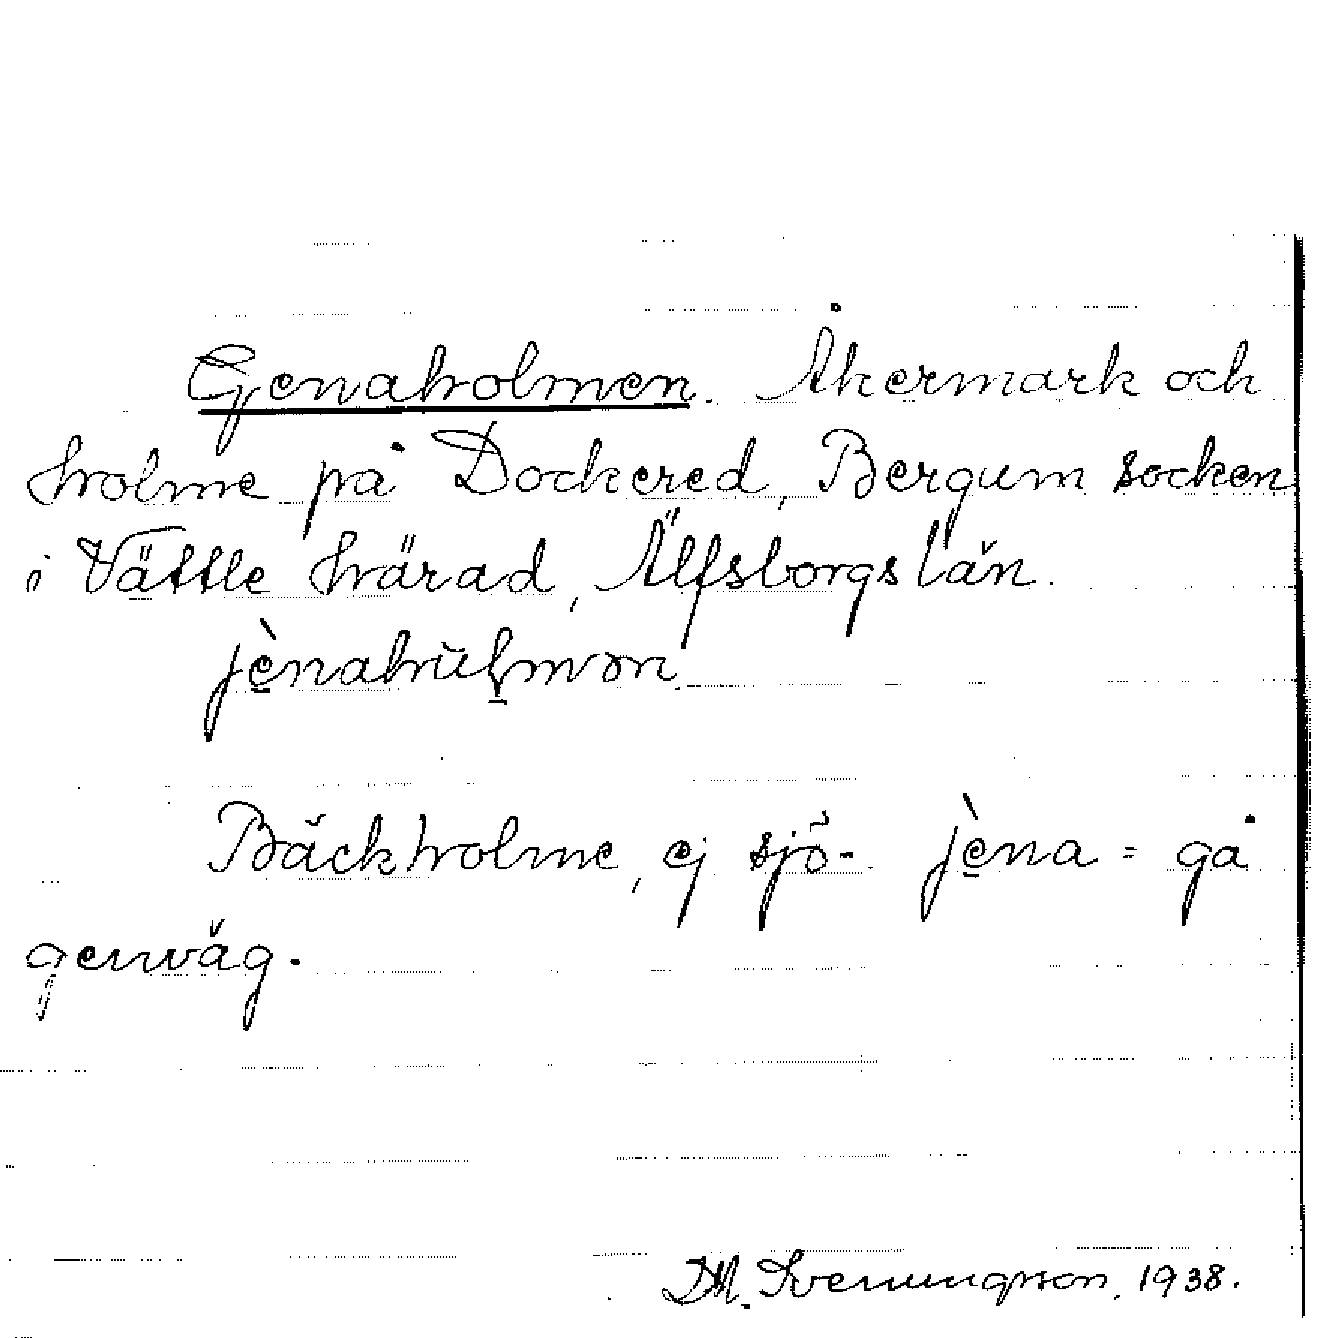 Genaholmen. Åkermark och
holme på Dockered, Bergum socken
i Vättle härad, Älfsborgs län.
jènahu̇lmən
Bäckholme, ej sjö- jèna = gå
genväg.
Svenungsson, 1938.